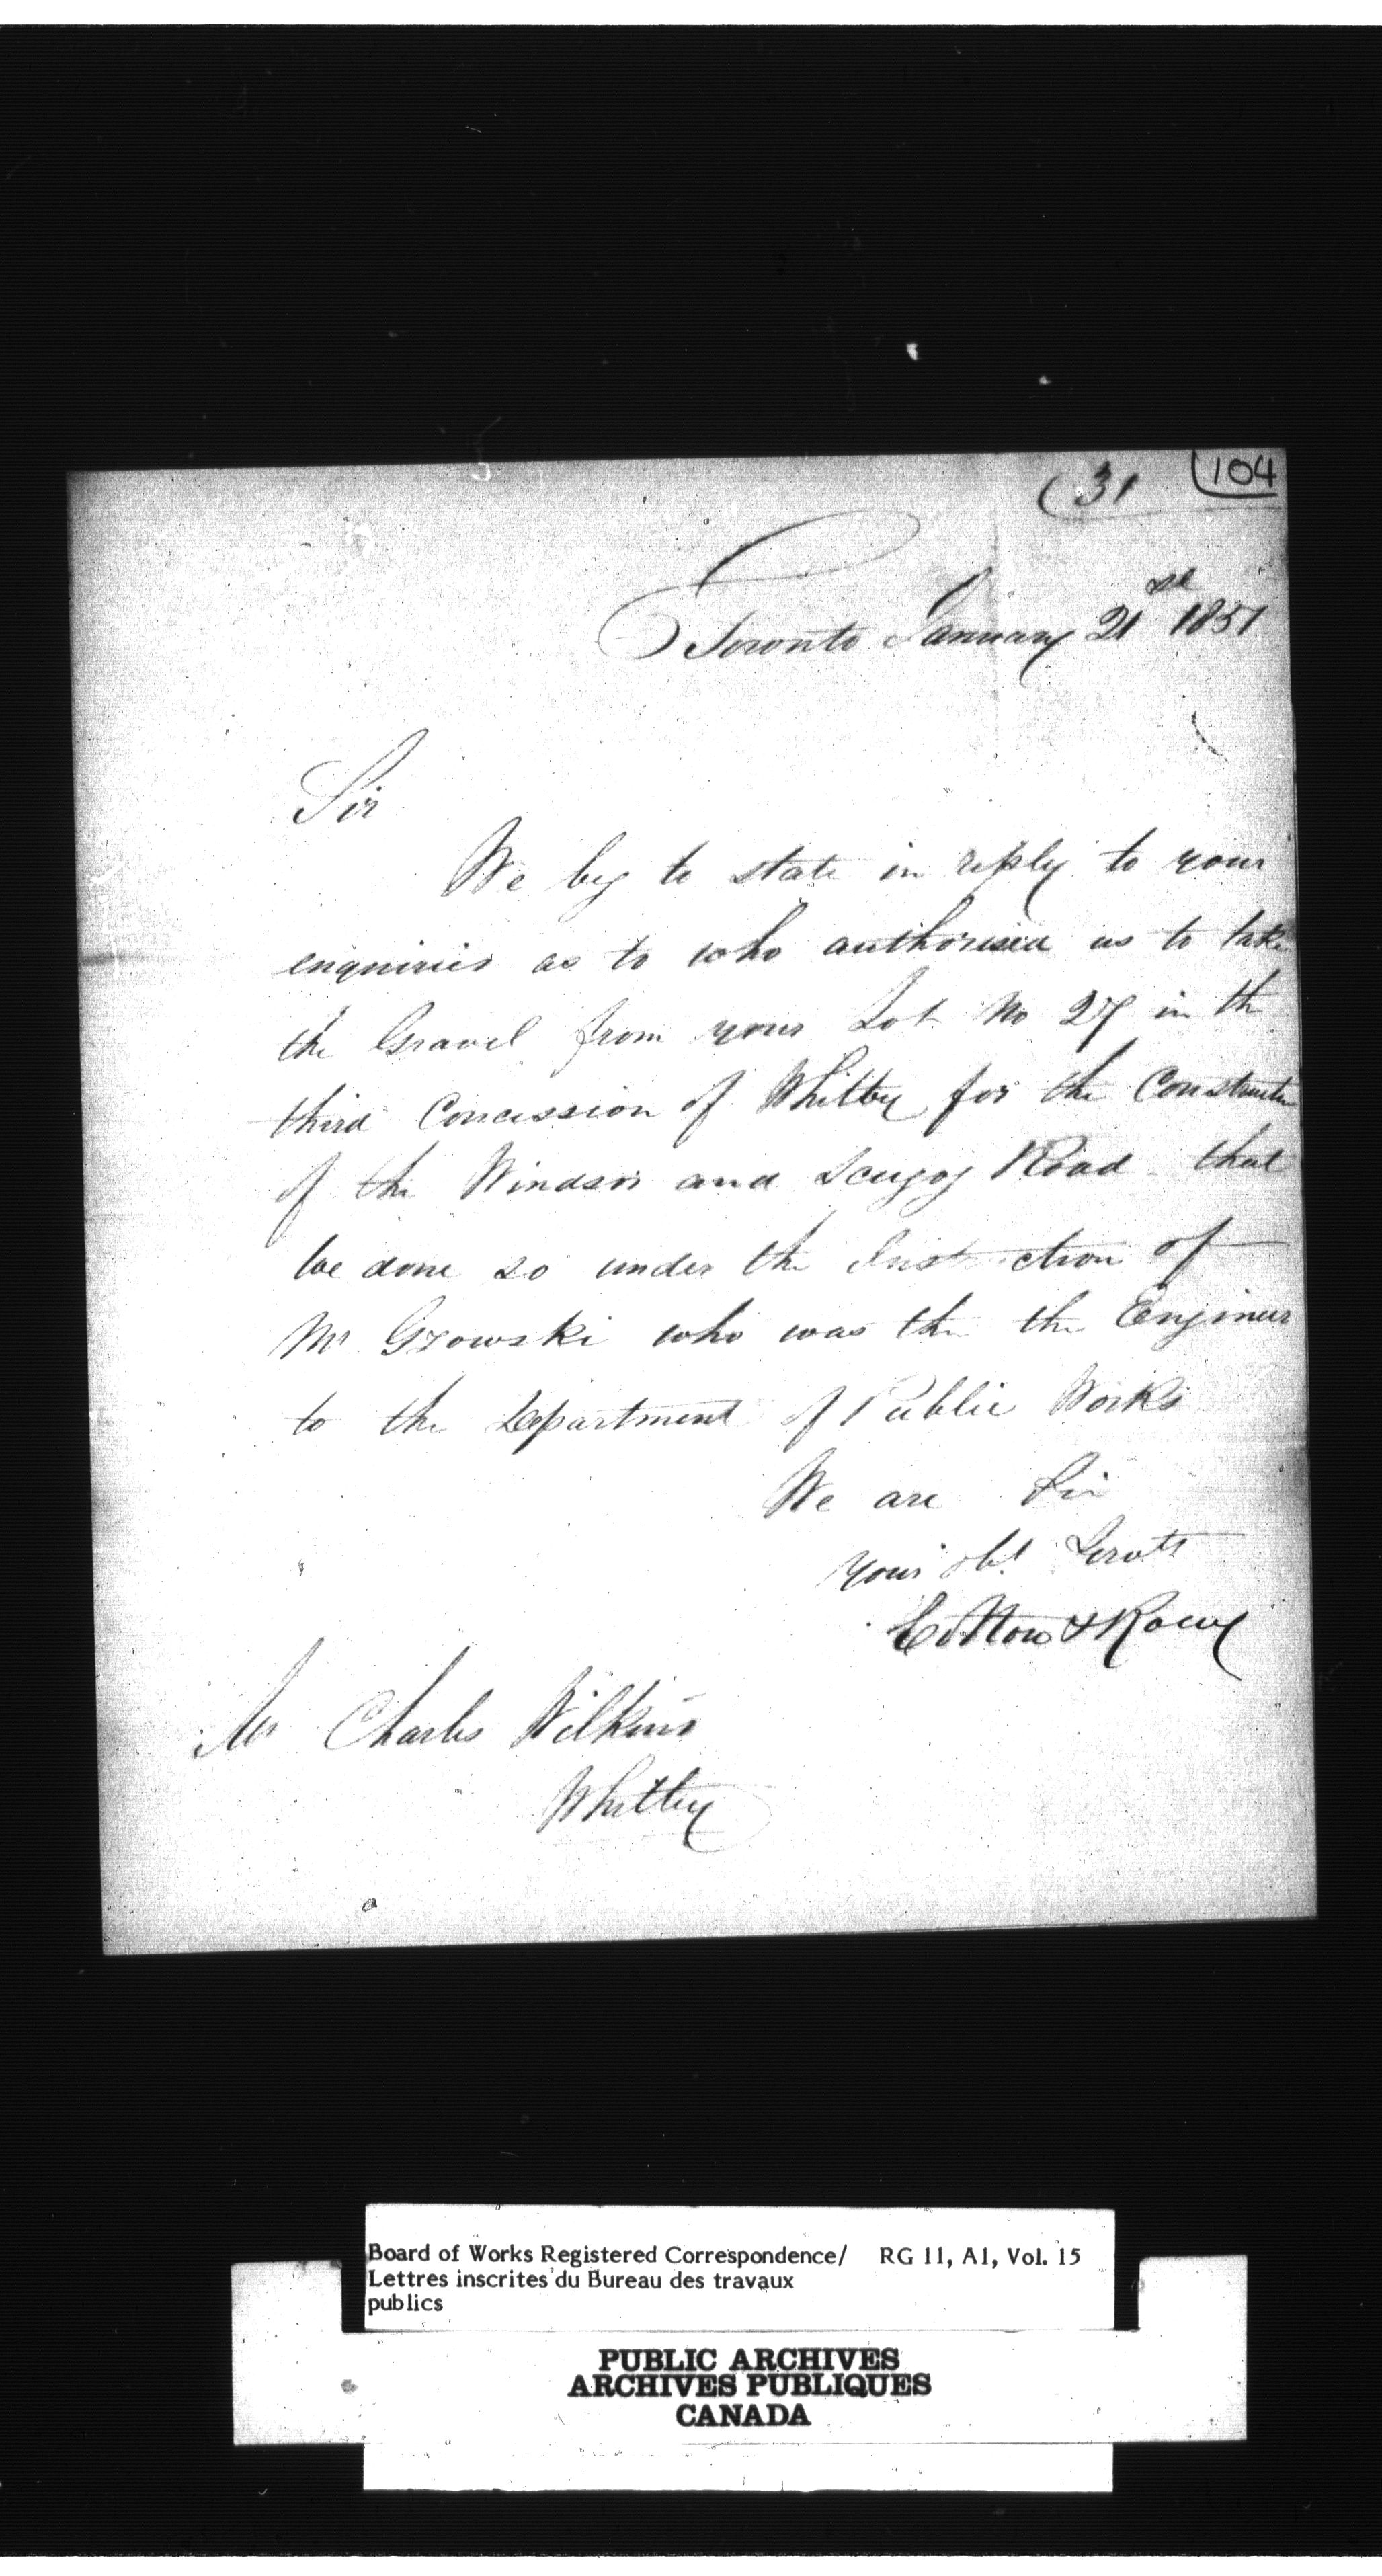 (31
104
Toronto January 21st 1851
Sir
We beg to state in reply to your
enquiries as to who authorised us to take
the Gravel from your Lot No 27 in the
third Concession of Whitby for the Construction
of the Windsor and Scugog Road that
we done so under the Instruction of
Mr Gzowski who was the the Engineer
to the Department of Public Works
We are Sir
your obt Servts
Cotton & Rowe
Mr Charles Wilkins
Whitby
Board of Works Registered Correspondence/ RG 11, A1, Vol. 15
Lettres inscrites du Bureau des travaux
publics
PUBLIC ARCHIVES
ARCHIVES PUBLIQUES
CANADA